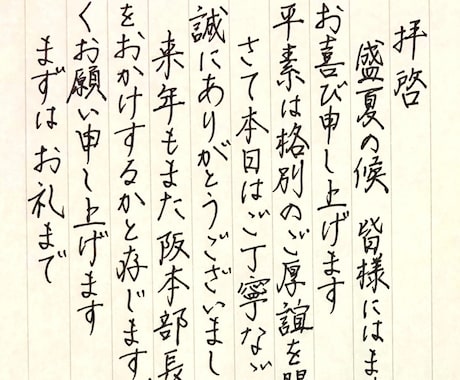 拝啓
盛夏の候 皆様にはま
お喜び申し上げます
平素は格別のご厚誼を
さて本日はご丁寧なご
誠にありがとうございまし
来年もまた阪本部長
をおかけするかと存じます
くお願い申し上げます
まずはお礼まで